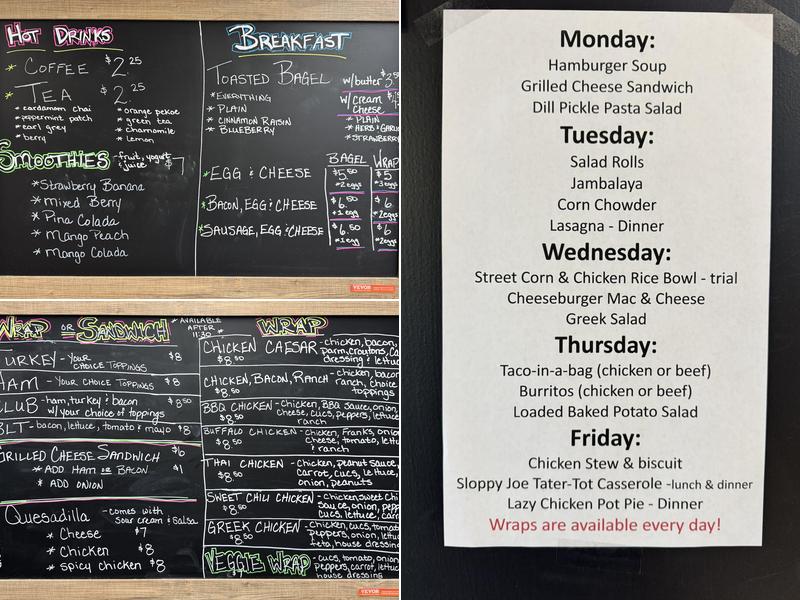 HOT DRINKS
* COFFEE $2.25
* TEA $2.25
* cardamom chai
* peppermint patch
* earl grey
* berry
* orange pekoe
* green tea
* chamomile
* lemon
SMOOTHIES - fruit, yogurt & juice $7
* Strawberry Banana
* Mixed Berry
* Pina Colada
* Mango Peach
* Mango Colada
BREAKFAST
TOASTED BAGEL
* EVERYTHING
* PLAIN
* CINNAMON RAISIN
* BLUEBERRY
w/butter
w/ cream
cheese
* PLAIN
* HERB &
BAGEL WRAP
* EGG & CHEESE $5.50 $5
*2eggs
* BACON, EGG & CHEESE $6.50 $6
*1 egg *2eggs
* SAUSAGE, EGG & CHEESE $6.50 $6
*1egg *2eggs
VEVOR
WRAP OR SANDWICH
* AVAILABLE
AFTER
11:30 *
TURKEY - YOUR $8
CHOICE TOPPINGS
HAM - YOUR CHOICE TOPPINGS $8
CLUB - ham, turkey & bacon $8.50
w/ your choice of toppings
BLT - bacon, lettuce, tomato & mayo $8
GRILLED CHEESE SANDWICH $6
* ADD HAM OR BACON $1
* ADD ONION
QUESADILLA - comes with
sour cream & salsa
* Cheese $7
* Chicken $8
* spicy chicken $8
WRAP
CHICKEN CAESAR - chicken, bacon,
$8.50 parm, croutons,
dressing &
CHICKEN, BACON, RANCH - chicken,
$8.50 ranch, choice
toppings
BBQ CHICKEN - Chicken, BBQ sauce, onion,
$8.50 cheese, cucs, peppers,
ranch
BUFFALO CHICKEN - chicken, Franks,
$8.50 cheese, tomato,
& ranch
THAI CHICKEN - chicken, peanut sauce,
$8.50 carrot, cucs,
onion, peanuts
SWEET CHILI CHICKEN - chicken, sweet
$8.50 sauce, onion,
cucs, lettuce,
GREEK CHICKEN - Chicken, cucs,
$8.50 peppers, onion,
feta, house dressing
VEGGIE WRAP - cucs, tomato, onion,
$7 peppers, carrot,
house dressing
VEVOR
Monday:
Hamburger Soup
Grilled Cheese Sandwich
Dill Pickle Pasta Salad
Tuesday:
Salad Rolls
Jambalaya
Corn Chowder
Lasagna - Dinner
Wednesday:
Street Corn & Chicken Rice Bowl - trial
Cheeseburger Mac & Cheese
Greek Salad
Thursday:
Taco-in-a-bag (chicken or beef)
Burritos (chicken or beef)
Loaded Baked Potato Salad
Friday:
Chicken Stew & biscuit
Sloppy Joe Tater-Tot Casserole -lunch & dinner
Lazy Chicken Pot Pie - Dinner
Wraps are available every day!